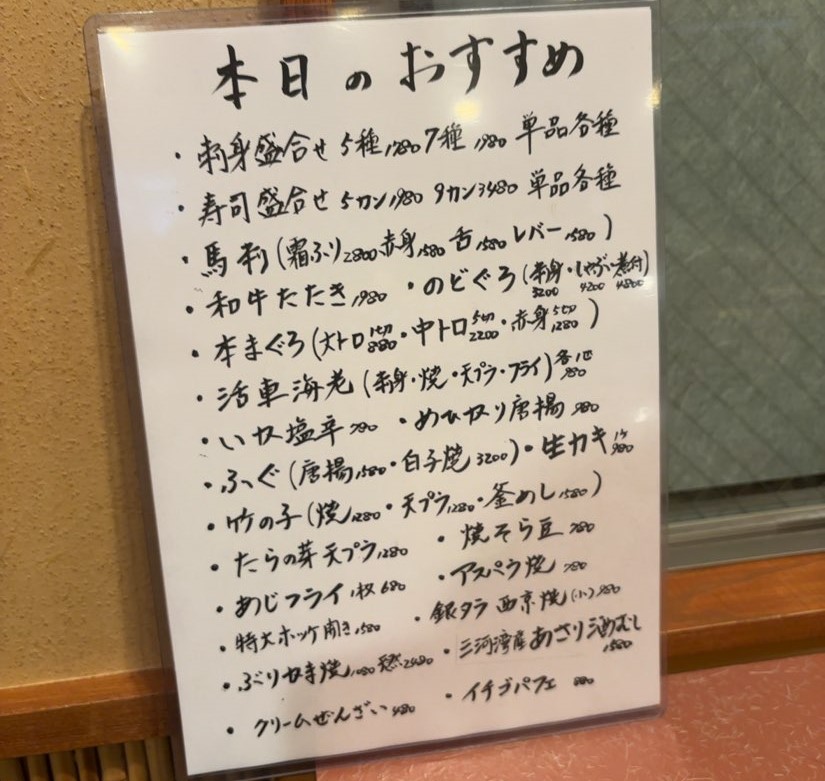 本日のおすすめ
・刺身盛合せ 5種1780 7種1980 単品各種
・寿司盛合せ 5カン1980 9カン3480 単品各種
・馬刺(霜ふり2800 赤身1580 舌1580 レバー1580)
・和牛たたき1980 ・のどぐろ(刺身3200・しゃぶ4200・煮付4800)
・本まぐろ(大トロ1切880・中トロ5切2200・赤身5切1280)
・活車海老(刺身・焼・天プラ・フライ)各1匹980
・いか塩辛780 ・めひかり唐揚980
・ふぐ(唐揚1580・白子焼3200)・生カキ1ケ980
・竹の子(焼1280・天プラ1280・釜めし1580)
・たらの芽天プラ1280 ・焼そら豆780
・あじフライ1枚680 ・アスパラ焼780
・特大ホッケ開き1580 ・銀タラ西京焼(小)980
・ぶりかま焼1080 2480 ・三河湾産あさり酒むし1580
・クリームぜんざい480 ・イチゴパフェ880